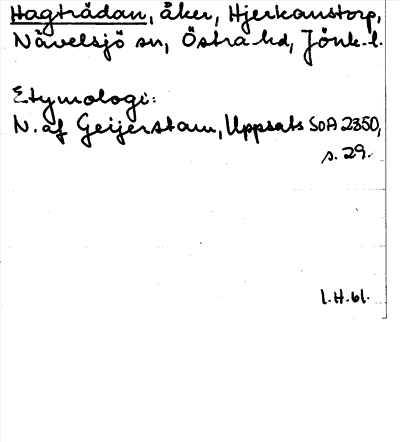 Hagträdan, åker, Hjerkanstorp,
Nävelsjö sn, Östra hd, Jönk. l.
Etymologi:
N. af Geijerstam, Uppsats SOA 2350,
s. 29.
1.H.61.